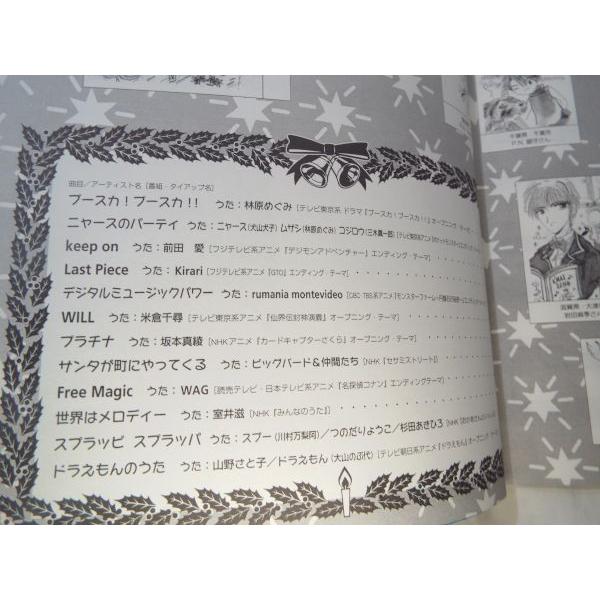 曲目／アーティスト名［番組・タイアップ名］
ブースカ！ブースカ！！ うた：林原めぐみ［テレビ東京系 ドラマ『ブースカ！ブースカ！！』オープニング・テーマ］
ニャースのパーティ うた：ニャース(犬山犬子) ムサシ(林原めぐみ) コジロウ(三木眞一郎)
keep on うた：前田 愛［フジテレビ系アニメ『デジモンアドベンチャー』エンディング・テーマ］
Last Piece うた：Kirari［フジテレビ系アニメ『GTO』エンディング・テーマ］
デジタルミュージックパワー うた：rumania montevideo
WILL うた：米倉千尋［テレビ東京系アニメ『仙界伝封神演義』オープニング・テーマ］
プラチナ うた：坂本真綾［NHKアニメ『カードキャプターさくら』オープニング・テーマ］
サンタが町にやってくる うた：ビッグバード＆仲間たち［NHK『セサミストリート』］
Free Magic うた：WAG［読売テレビ・日本テレビ系アニメ『名探偵コナン』エンディングテーマ］
世界はメロディー うた：室井滋［NHK『みんなのうた』］
スプラッピ スプラッパ うた：スプー(川村万梨阿)／つのだりょうこ／杉田あきひろ
ドラえもんのうた うた：山野さと子／ドラえもん(大山のぶ代)［テレビ朝日系アニメ『ドラえもん』オープニング・テーマ］
千葉県 千葉市